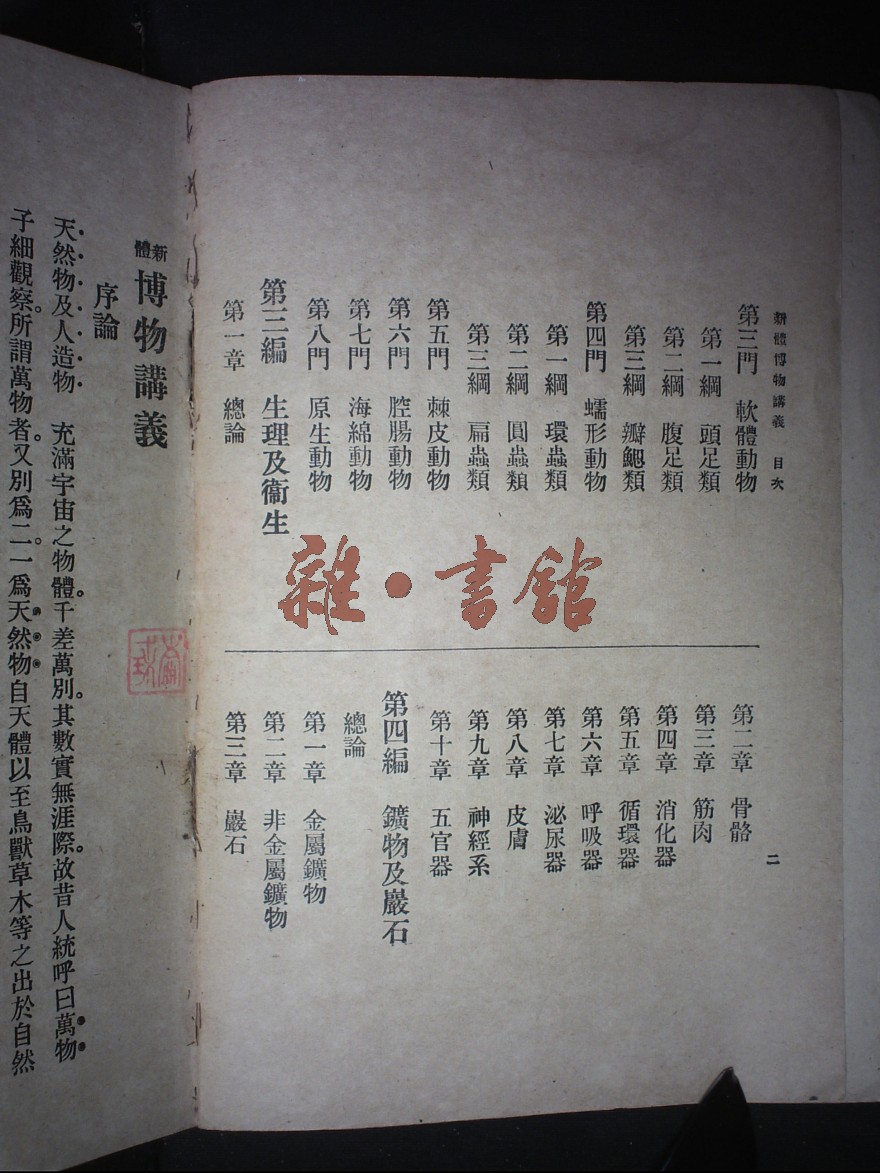 新體博物講義 目次
第三門 軟體動物
第一綱 頭足類
第二綱 腹足類
第三綱 瓣鰓類
第四門 蠕形動物
第一綱 環蟲類
第二綱 圓蟲類
第三綱 扁蟲類
第五門 棘皮動物
第六門 腔腸動物
第七門 海綿動物
第八門 原生動物
第三編 生理及衞生
第一章 總論
第二章 骨骼
第三章 筋肉
第四章 消化器
第五章 循環器
第六章 呼吸器
第七章 泌尿器
第八章 皮膚
第九章 神經系
第十章 五官器
第四編 鑛物及巖石
總論
第一章 金屬鑛物
第二章 非金屬鑛物
第三章 巖石
二
雜·書館
新體博物講義
序論
天然物及人造物 充滿宇宙之物體。千差萬別。其數實無涯際。故昔人統呼曰萬物
子細觀察。所謂萬物者。又別爲二。一爲天然物。自天體以至鳥獸草木等之出於自然